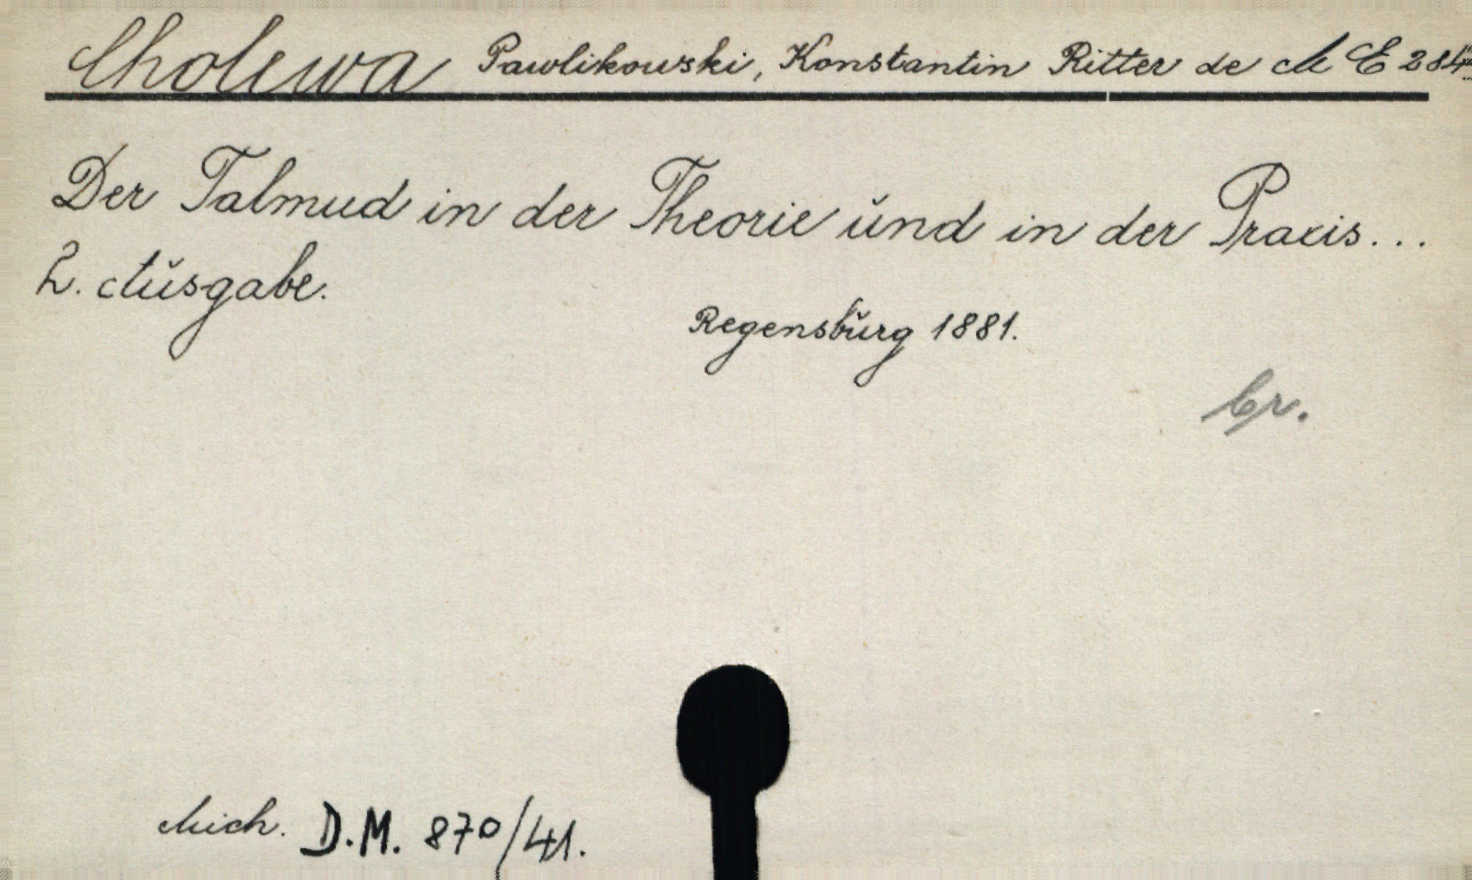 Cholewa Pawlikowski, Konstantin Ritter de M E 284
Der Talmud in der Theorie und in der Praxis...
2. Ausgabe.
Regensburg 1881.
Mich. D.M. 870/41.